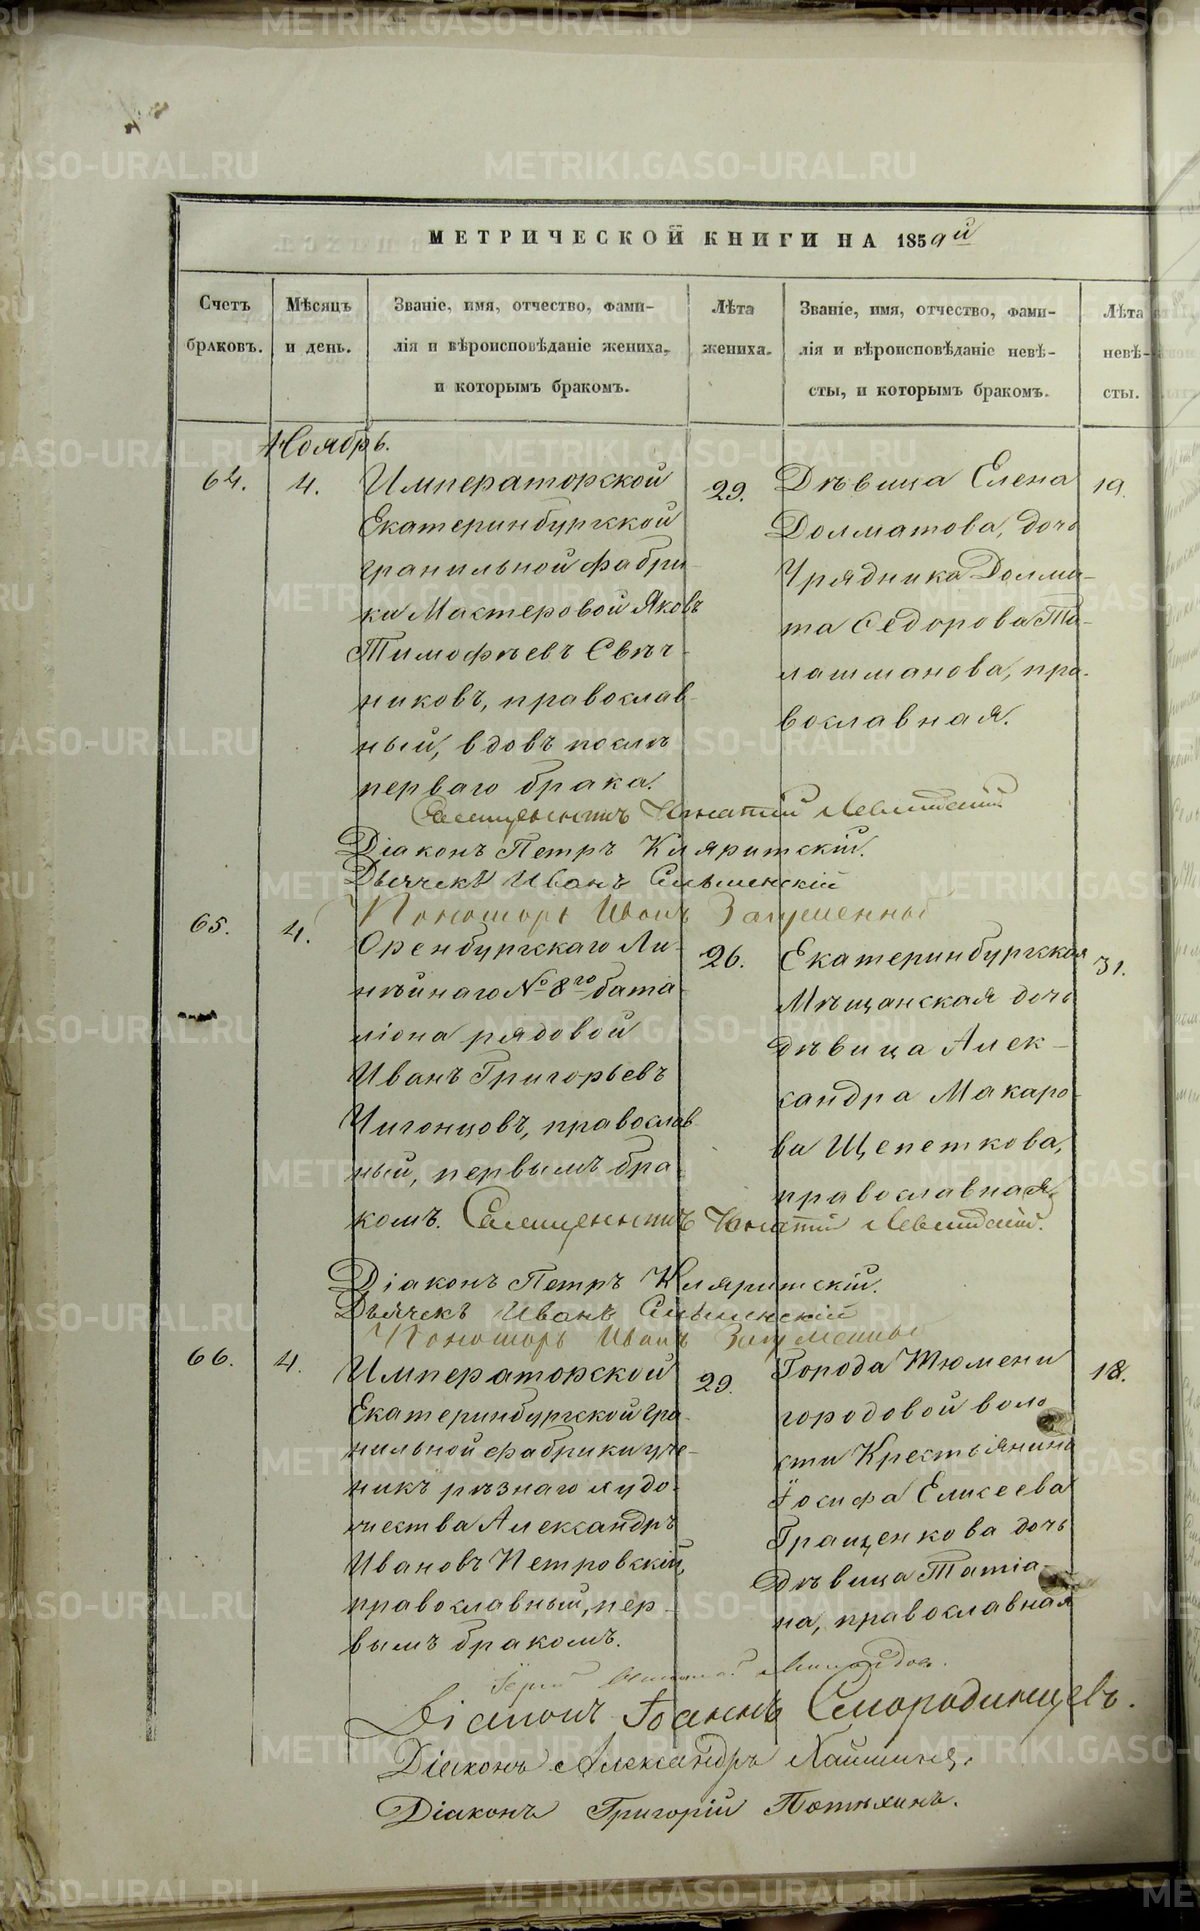 МЕТРИЧЕСКОЙ КНИГИ НА 1859й
Счетъ браковъ.
Мѣсяцъ и день.
Званіе, имя, отчество, фами-
лія и вѣроисповѣданіе жениха,
и которымъ бракомъ.
Лѣта жениха.
Званіе, имя, отчество, фами-
лія и вѣроисповѣданіе невѣ-
сты, и которымъ бракомъ.
Лѣта невѣ-
сты.
Ноябрь.
64.
4.
Императорской
Екатеринбургской
гранильной фабри-
ки Мастеровой Яковъ
Тимофѣевъ Свѣч-
никовъ, православ-
ный, вдовъ послѣ
перваго брака.
29.
Дѣвица Елена
Долматова, дочь
Урядника Долма-
та Седорова Та-
лашманова, пра-
вославная.
19.
Священникъ Игнатій Левитскій
Діаконъ Петръ Кляритскій.
Дьячекъ Иванъ Смѣленскій
Пономарь Иванъ
65.
4.
Оренбургскаго Ли-
нѣйнаго № 8го бата-
ліона рядовой
Иванъ Григорьевъ
Чигонцовъ, православ-
ный, первымъ бра-
комъ.
26.
Екатеринбургская
Мѣщанская дочь
дѣвица Алек-
сандра Макаро-
ва Щепеткова,
православная.
31.
Священникъ Игнатій Левитскій.
Діаконъ Петръ Кляритскій.
Дьячекъ Иванъ Смѣленскій
Пономарь Иванъ
66.
4.
Императорской
Екатеринбургской гра-
нильной фабрики уче-
никъ рѣзнаго худо-
жества Александръ
Ивановъ Петровскій,
православный, пер-
вымъ бракомъ.
29.
Города Тюмени
городовой воло-
сти Крестьянина
Іосифа Елисеева
Гращенкова дочь
Дѣвица Татіа-
на, православная
18.
Діаконъ Іоаннъ Смородинцевъ.
Діаконъ Александръ
Діаконъ Григорій Потѣхинъ.
METRIKI.GASO-URAL.RU